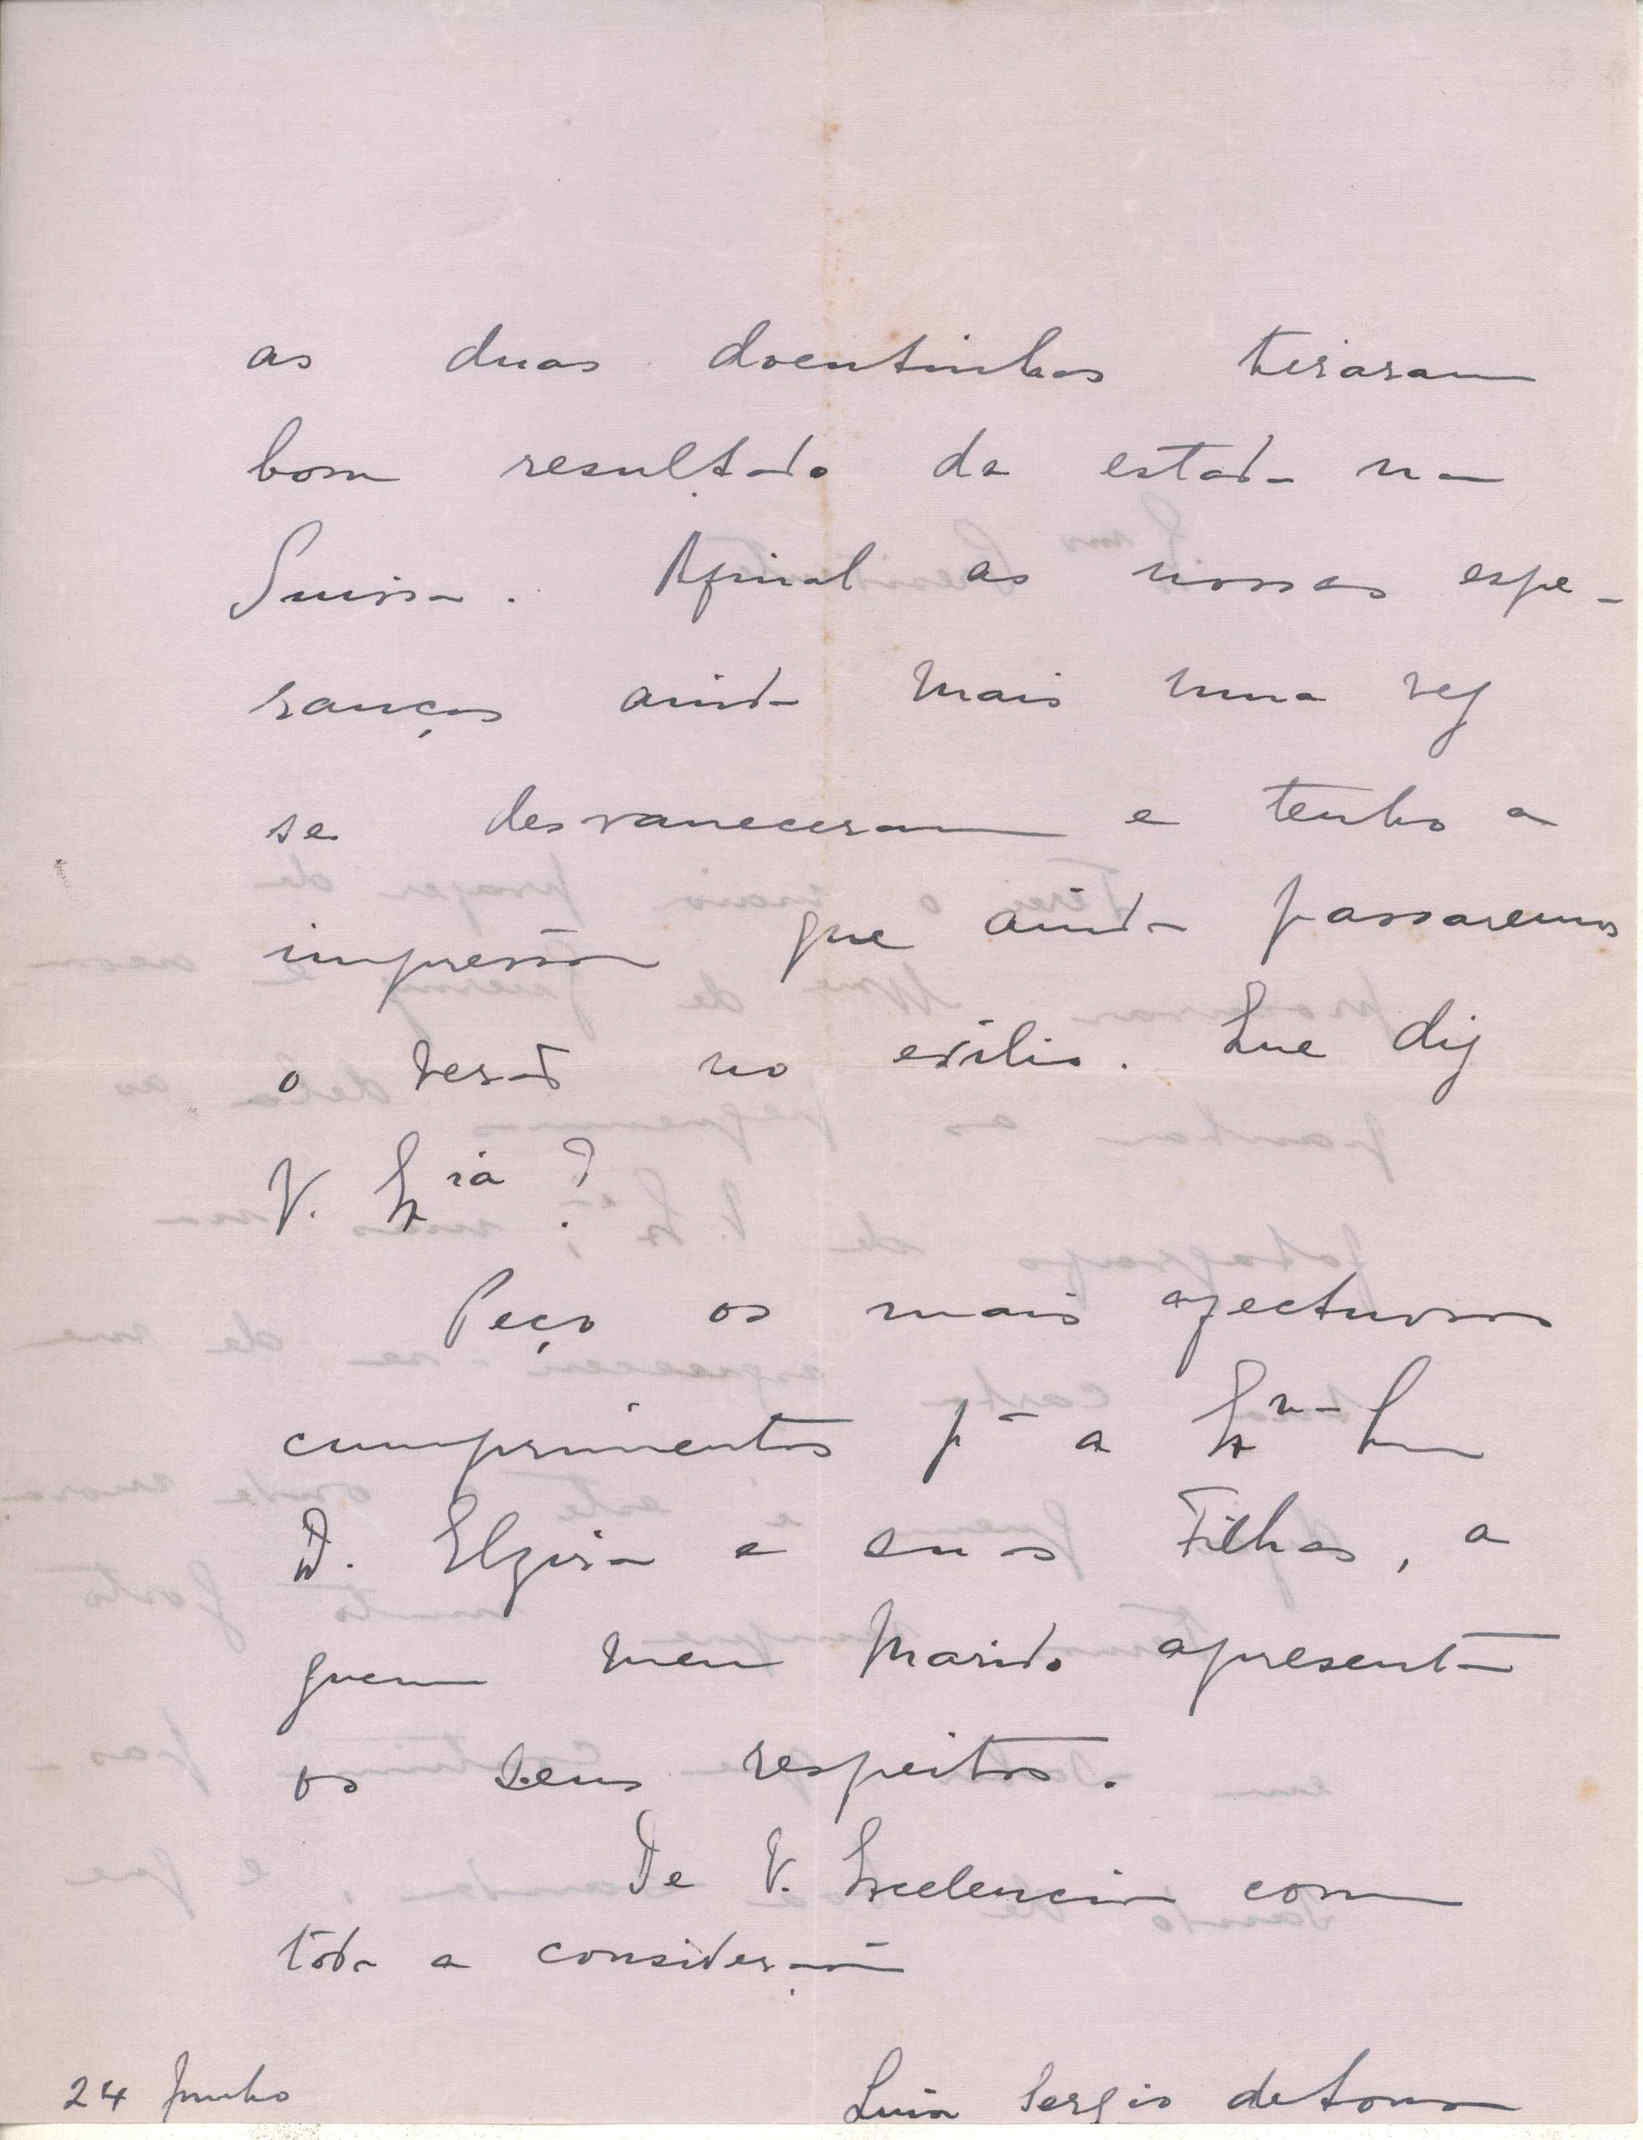 as duas doentinhas tiraram
bom resultado da estada na
Suissa. Afinal as nossas espe-
ranças ainda mais uma vez
se desvaneceram e tenho a
impressão que ainda passaremos
o verão no exilio. Que diz
V. Exia?
Peço os mais afectuosos
cumprimentos pª a Exma Sra
D. Elzira e suas Filhas, a
quem meu Marido apresenta
os seus respeitos.
De V. Excelencia com
toda a consideração
24 Junho
Luisa Sergio de Sousa